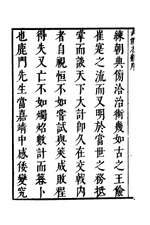 練朝典傍洽治術幾如古之王儉
崔寔之流而又明於當世之務抵
掌而談天下大計卽久在交戟內
者自視恒不如嘗試與筴成敗程
得失又亡不如燭炤數計而蓍卜
也鹿門先生當嘉靖中感倭變究